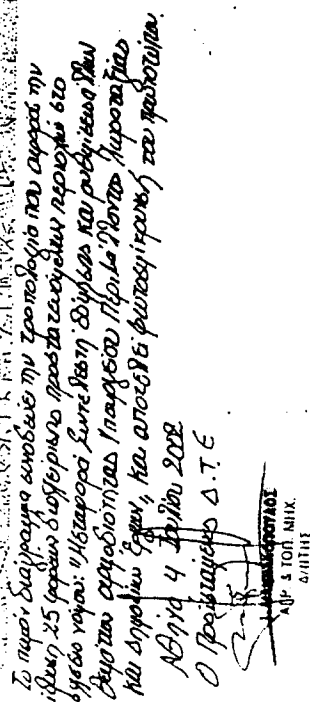 Το παρόν διάγραμμα συνοδεύει την τροπολογία που αφορά την
ίδρυση 25 φορέων διαχείρισης προστατευομένων περιοχών στο
σχέδιο νόμου: "Μεταφορά Συντελεστή δόμησης και ρυθμίσεις άλλων
θεμάτων αρμοδιότητας Υπουργείου Περιβάλλοντος Χωροταξίας
και Δημοσίων Έργων, και αποτελεί φωτοσμίκρυνση του πρωτοτύπου.
Αθήνα 4 Ιουλίου 2002
Ο Προϊστάμενος Δ.Τ.Ε
ΑΓΡ & ΤΟΠ. ΜΗΧ.